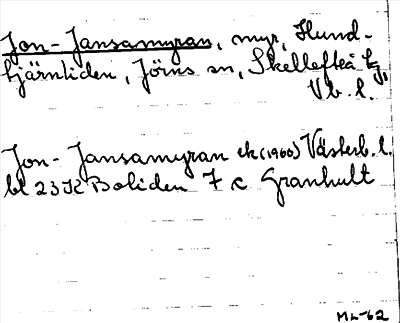 Jon-Jansamyran, myr, Hund-
tjärnliden, Jörns sn, Skellefteå tg,
Vb. l.
Jon-Jansamyran ek (1960) Västerb. l.
bl 23 K Boliden 7 c Granhult
ML-62